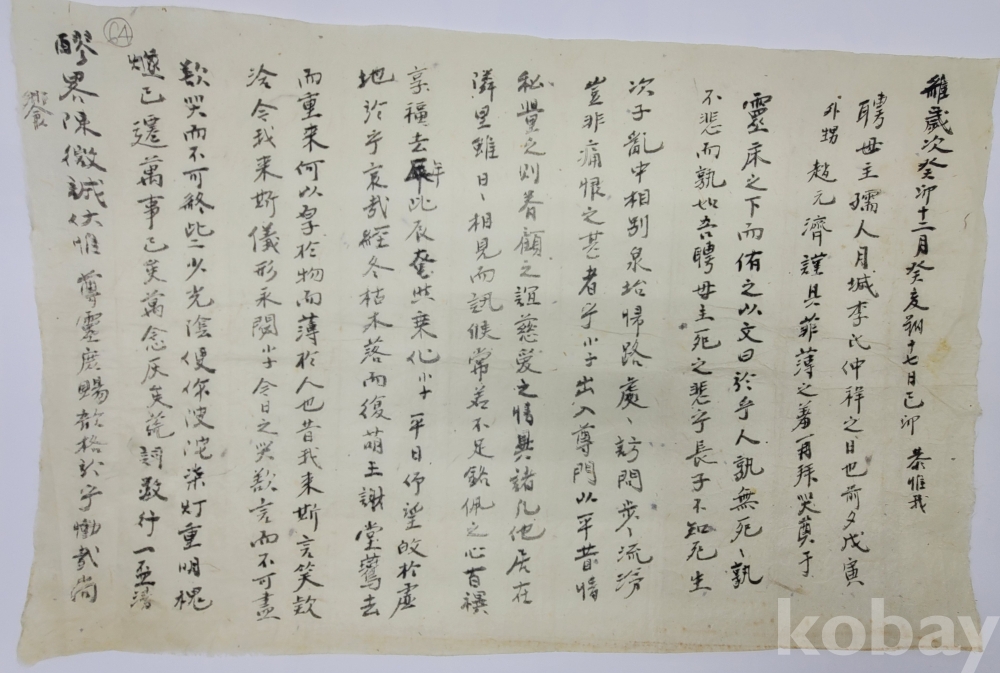 維歲次癸卯十二月癸亥朔十七日己卯 恭惟我
聘母主孺人月城李氏仲祥之日也前夕戊寅
外甥 趙元濟謹具菲薄之羞再拜哭奠于
靈床之下而侑之以文曰於乎人孰無死丶孰
不悲而孰如吾聘母主死之悲乎長子不知死生
次子亂中相別泉坮帰路處丶訪問步丶流涕
豈非痛恨之甚者乎小子出入尊門以平昔情
私量之則眷顧之誼慈愛之情異諸凡他居在
隣里雖日丶相見而訊候常若不足銘佩之心昔禩
享福去年此辰奄然乘化小子平日仰望敀於虛
地於乎哀哉經冬枯木落而復萌王謝堂鶯去
而重来何以厚於物而薄於人也昔我来斯言笑款
洽今我来斯儀形永閟小子今日之哭歎言而不可盡
歎哭而不可終此二少光陰倐係波沱柒灯重明槐
燧已遷萬事已矣萬念灰矣荒詞敬行一盃湯
醪畧陳微誠伏惟 尊靈庶賜歆格於乎慟哉尚
饗
64
kobay